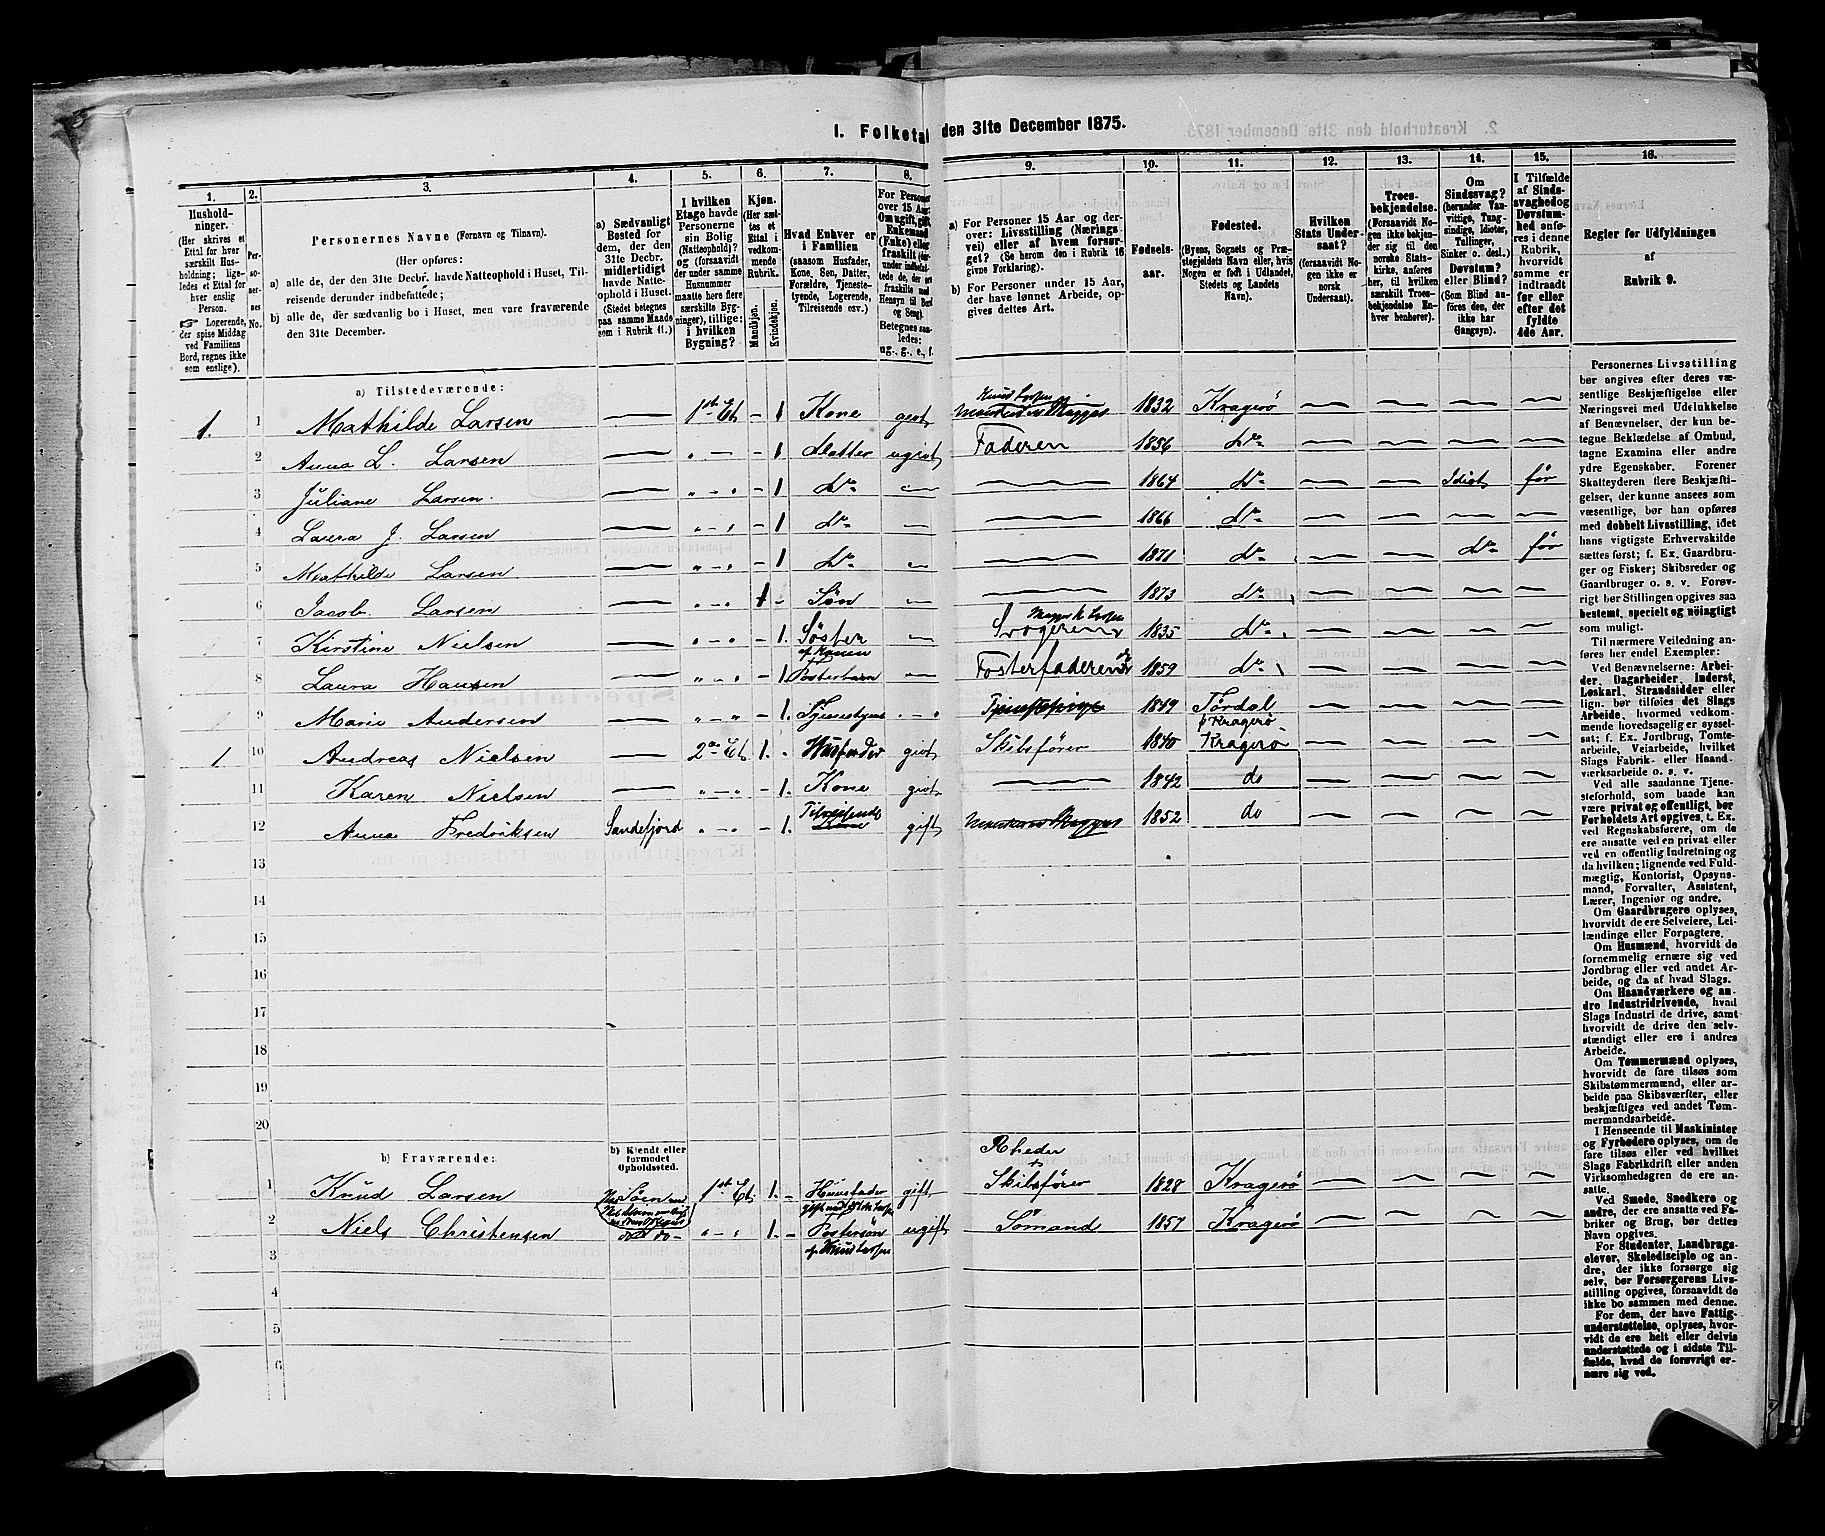 I. Folketal den 31te December 1875.
1. 2. 3. 4. 5. 6. 7. 8. 9. 10. 11. 12. 13. 14. 15. 16.
Husholdninger.
(Her skrives et
Ettal for hver
særskilt Husholdning;
ligeledes et Ettal for
hver enslig
Person.
☞ Logerende,
der spise Middag
ved Familiens
Bord, regnes ikke
som enslige).
Personernes No.
Personernes Navne (Fornavn og Tilnavn).
(Her opføres:
a) alle de, der den 31te Decbr. havde Natteophold i Huset, Tilreisende derunder indbefattede;
b) alle de, der sædvanlig bo i Huset, men vare fraværende
den 31te December.
a) Sædvanligt
Bosted for
dem, der den
31te Decbr.
midlertidigt
havde Natteophold i Huset.
(Stedet betegnes
paa samme Maade
som i Rubrik 11.)
I hvilken
Etage havde
Personerne
sin Bolig
(Natteophold)?
og (forsaavidt
der under samme
Husnummer
maatte høre flere
særskilte Bygninger), tillige:
i hvilken
Bygning?
Kjøn.
(Her sættes et
Ettal i
vedkommende
Rubrik.
Mandkjøn.
Kvindekjøn.
Hvad Enhver er
i Familien
(saasom Husfader,
Kone, Søn, Datter,
Forældre, Tjenestetyende, Logerende,
Tilreisende osv.)
For Personer
over 15 Aar:
Om ugift, gift,
Enkemand
(Enke) eller
fraskilt
Betegnes saaledes:
ug., g., e., f.
a) For Personer 15 Aar og derover: Livsstilling (Næringsvei) eller af hvem forsørget? (Se herom den i Rubrik 16
givne Forklaring).
b) For Personer under 15 Aar,
der have lønnet Arbeide, opgives dettes Art.
Fødselsaar.
Fødested.
(Byens, Sognets og Præstegjeldets Navn eller, hvis
Nogen er født i Udlandet,
Stedets og Landets
Navn).
Hvilken
Stats Undersaat?
(forsaavidt Nogen ikke er
norsk
Undersaat).
Troesbekjendelse.
(Forsaavidt Nogen ikke bekjender sig til den
norske Statskirke, anføres
her, til hvilken
særskilt Troesbekjendelse Enhver henhører).
Om
Sindssvag?
(herunder Vanvittige, Tungsindige, Idioter,
Tullinger,
Sinker o. desl.)
Døvstum?
eller Blind?
(Som Blind anføres den, der
ikke har
Gangsyn).
I Tilfælde
af Sindssvaghed og
Døvstumhed anføres i denne
Rubrik,
hvorvidt
samme er
indtraadt
før eller
efter det
fyldte
4de Aar.
Regler for Udfyldningen
af
Rubrik 9.
a) Tilstedeværende:
1. 1 Mathilde Larsen — 1st Et. – 1 Kone givt Knud Larsen 1832 Kragerö — — — —
2 Anna L. Larsen — „ — 1 Datter ugivt Faderen 1856 do — — — —
3 Juliane Larsen. — „ – „ – 1 do — — 1864 do — — Idiot før
4 Laura J. Larsen — „ – „ – 1 do — — 1866 do — — — —
5 Mathilde Larsen — „ – „ – 1 do — — 1871 do — — do før
6 Jacob Larsen — „ – „ 1 – Søn — — 1873 do — — — —
7 Kirstine Nielsen — „ – „ – 1. Söster af Konen — Svogeren 1835 do — — — —
8 Laura Hansen — „ – „ – 1. Fosterbarn — Fosterfaderen 1859 do — — — —
9 Marie Andersen — „ – „ – 1. „ – „ 1849 Tördal p Kragerö — — — —
1 10 Andreas Nielsen — 2den Et. 1. – Husfader givt Skibsfører 1840 Kragerö — — — —
11 Karen Nielsen — „ – „ – 1 Kone givt — 1842 do — — — —
12 Anna Fredriksen Sandefjord „ – „ – 1. Tilreisende gift 1852 do — — — —
13
14
15
16
17
18
19
20
b) Fraværende:
b) Kjendt eller
formodet
Opholdssted.
Rheder
1 Knud Larsen 1st Et. 1. – Huusfader gift Skibsfører 1828 Kragerö — — — —
2 Niels Christensen „ – „ 1. – Fostersøn af Knud Larsen ugift Sømand 1857 Kragerö — — — —
3
4
5
6
Personernes Livsstilling
bør angives efter deres væsentlige Beskjæftigelse eller
Næringsvei med Udelukkelse
af Benævnelser, der kun betegne Beklædelse af Ombud,
tagne Examina eller andre
ydre Egenskaber. Forener
Skatteyderen flere Beskjæftigelser, der kunne ansees som
væsentlige, bør han opføres
med dobbelt Livsstilling, idet
hans vigtigste Erhvervskilde
sættes først; f. Ex. Gaardbruger og Fisker; Skibsreder og
Gaardbruger o. s. v. Forøvrigt bør Stillingen opgives saa
bestemt, specielt og nöiagtigt
som muligt.
Til nærmere Veiledning anføres her endel Exempler:
Ved Benævnelserne: Arbeider, Dagarbeider, Inderst,
Løskarl, Strandsidder eller
lign. bør tilføies det Slags
Arbeide, hvormed vedkommende hovedsagelig er sysselsat; f. Ex. Jordbrug, Tomtearbeide, Veiarbeide, hvilket
Slags Fabrik- eller Haandværksarbeide o. s. v.
Ved alle saadanne Tjenesteforhold, som baade kan
være privat og offentligt, bør
Forholdets Art opgives, t. Ex.
ved Regnskabsførere, om de
ere ansatte ved en privat eller
ved en offentlig Indretning og
da hvilken; lignende ved Fuldmægtig, Kontorist, Opsynsmand, Forvalter, Assistent,
Lærer, Ingeniør og andre.
Om Gaardbrugere oplyses,
hvorvidt de ere Selveiere, Leilændinge eller Forpagtere.
Om Husmænd, hvorvidt de
fornemmelig ernære sig ved
Jordbrug eller ved andet Arbeide, og da af hvad Slags.
Om Haandværkere og andre Industridrivende, hvad
Slags Industri de drive, samt
hvorvidt de drive den selvstændigt eller ere i andres
Arbeide.
Om Tømmermænd oplyses,
hvorvidt de fare tilsøs som
Skibstømmermænd, eller arbeide paa Skibsværfter, eller
beskjæftiges ved andet Tømmermandsarbeide.
I Henseende til Maskinister
og Fyrbødere oplyses, om de
fare tilsøs eller ved hvilket
Slags Fabrikdrift eller anden
Virksomhedsgren de ere ansatte.
Ved Smede, Snedkere og
andre, der ere ansatte ved Fabriker og Brug, bør dettes
Navn opgives.
For Studenter, Landbrugselever, Skoledisciple og andre, der ikke forsørge sig
selv, bør Forsørgerens Livsstilling opgives, forsaavidt de
ikke bo sammen med denne.
For dem, der have Fattigunderstøttelse, oplyses, hvorvidt de ere helt eller delvis
understøttede og i sidste Tilfælde, hvad de forøvrigt ernære sig ved.